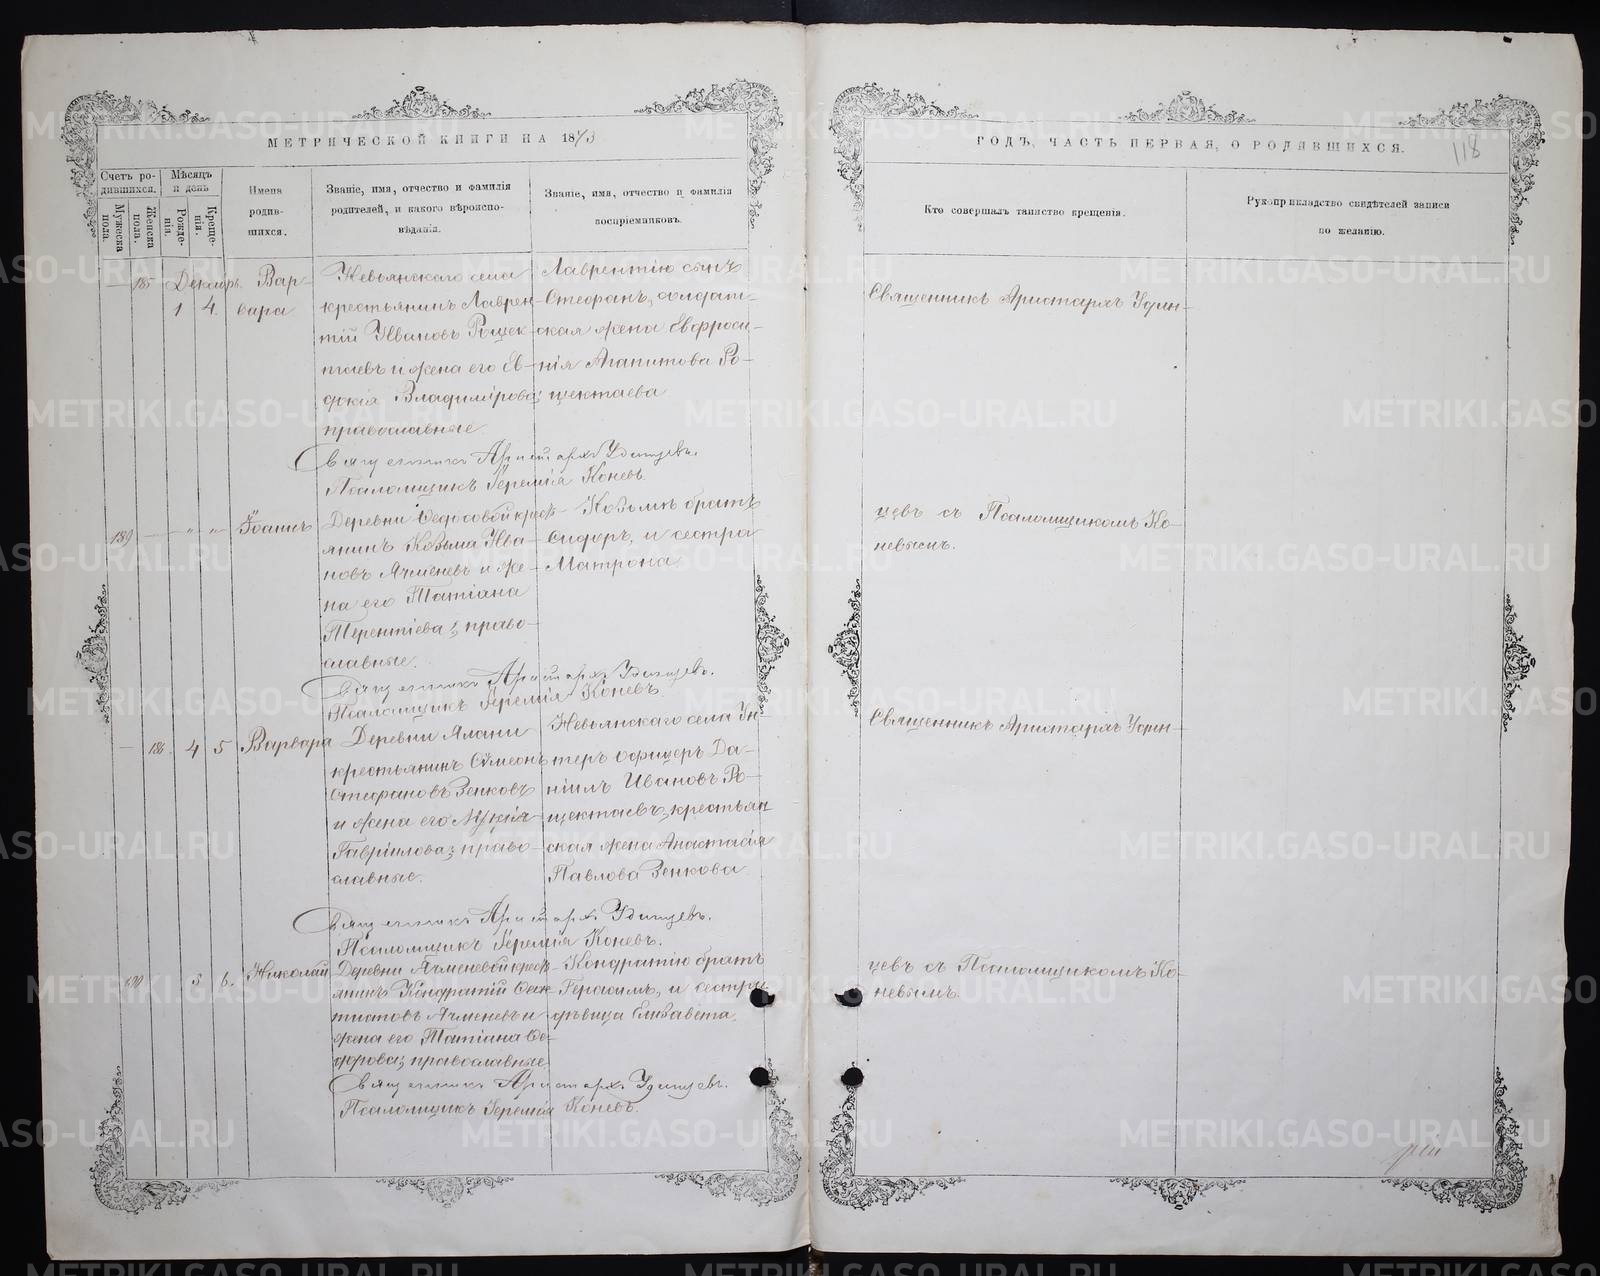 МЕТРИЧЕСКОЙ КНИГИ НА 1873
ГОДЪ, ЧАСТЬ ПЕРВАЯ, О РОДИВШИХСЯ.
118
Счетъ ро-
дившихся.
Мужеска
пола.
Женска
пола.
Мѣсяцъ
и день
Рожде-
нія.
Креще-
нія.
Имена
родив-
шихся.
Званіе, имя, отчество и фамилія
родителей, и какого вѣроиспо-
вѣданія.
Званіе, имя, отчество и фамилія
воспріемниковъ.
Кто совершалъ таинство крещенія.
Рукоприкладство свидѣтелей записи
по желанію.
185 Декабр. Вар-
1 4. вара
Невьянскаго села
крестьянинъ Лаврен-
тій Ивановъ Рощек-
таевъ и жена его Ев-
докія Владимірова;
православные
Лаврентію сынъ
Стефанъ, солдат-
ская жена Евфроси-
нія Агапитова Ро-
щектаева
Священникъ Аристархъ Удин-
Священникъ Аристархъ Удинцевъ.
Псаломщикъ Іеремія Коневъ.
189 — " " Іоаннъ
Деревни Федосовой крест-
янинъ Козьма Ива-
новъ Ячменевъ и же-
на его Татіана
Терентіева; право-
славные.
Козьмѣ братъ
Сидоръ, и сестра
Матрона
цевъ съ Псаломщикомъ Ко-
невымъ.
Священникъ Аристархъ Удинцевъ.
Псаломщикъ Іеремія Коневъ.
— 186. 4 5 Варвара
Деревни Ялани
крестьянинъ Сѵмеонъ
Стефановъ Зенковъ
и жена его Лукія
Гавріилова; право-
славные.
Невьянскаго села Ун-
теръ офицеръ Да-
ніилъ Ивановъ Ро-
щектаевъ, крестьян
ская жена Анастасія
Павлова Зенкова
Священникъ Аристархъ Удин-
Священникъ Аристархъ Удинцевъ.
Псаломщикъ Іеремія Коневъ.
190 5 6. Николай
Деревни Ячменевой крест-
янинъ Кондратій
Ячменевъ и
жена его Татіана Ѳе-
дорова; православные
Кондратію братъ
Герасимъ, и сестра
дѣвица Елизавета.
цевъ съ Псаломщикомъ Ко-
невымъ.
Священникъ Аристархъ Удинцевъ.
Псаломщикъ Іеремія Коневъ.
METRIKI.GASO-URAL.RU